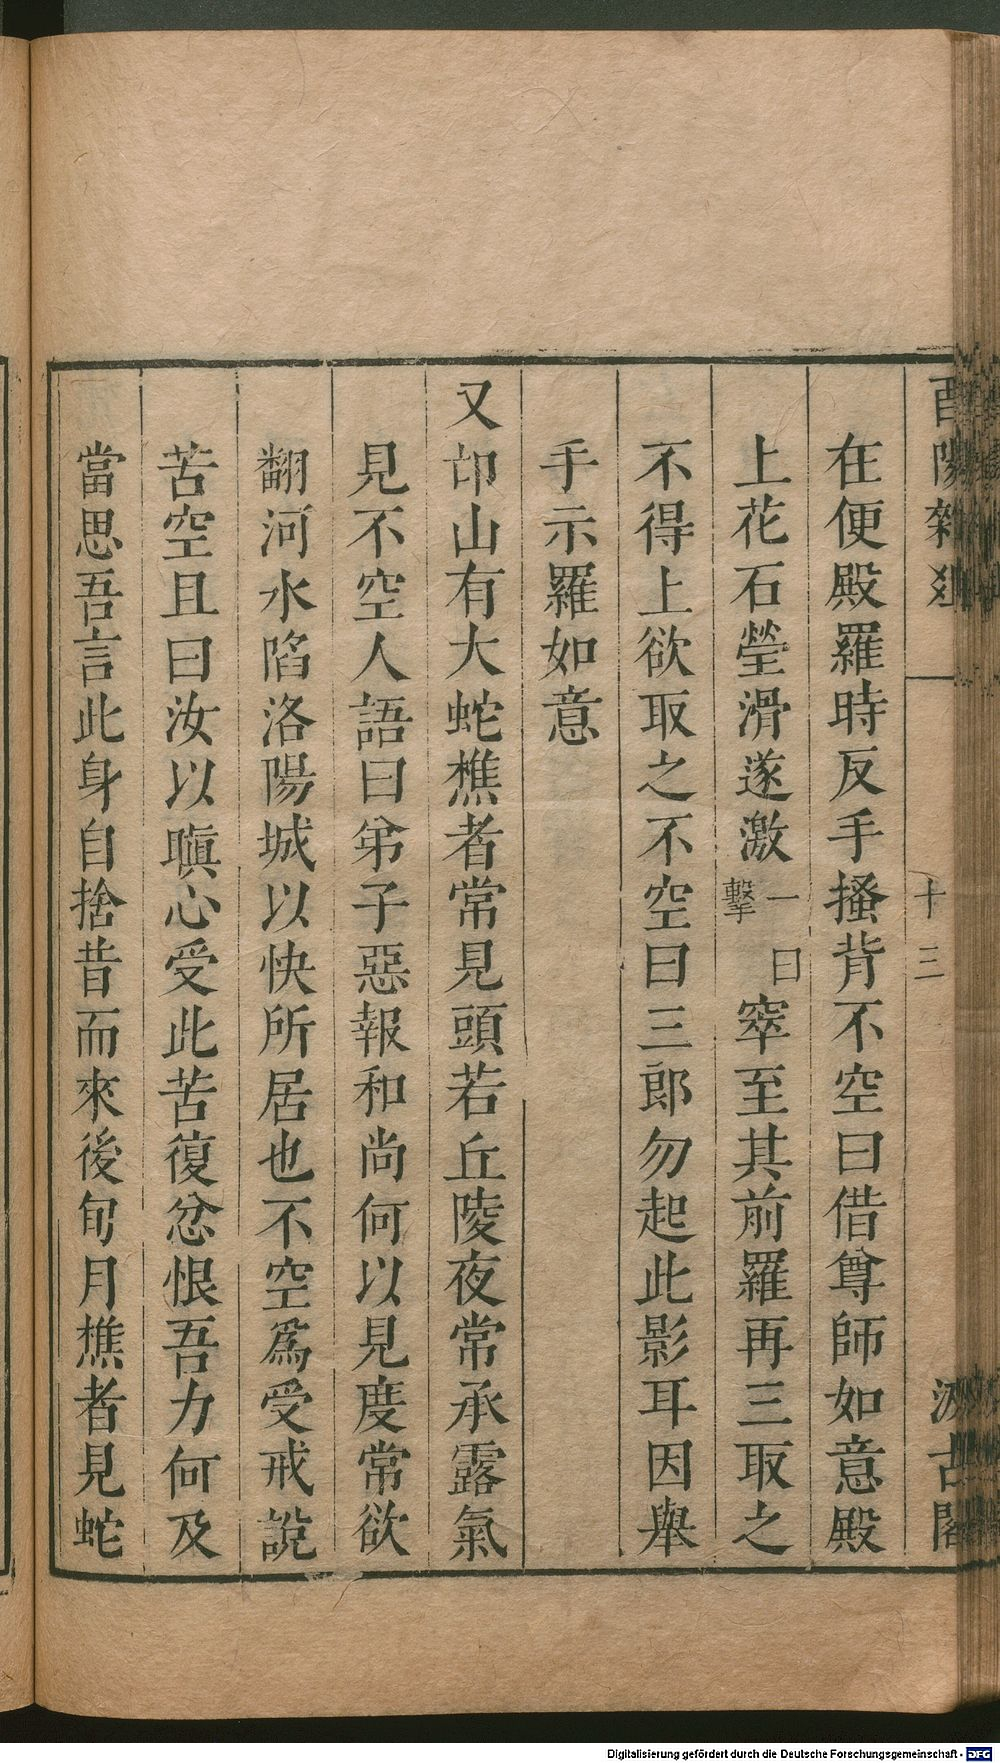 酉陽雜俎
十三
汲古閣
在便殿羅時反手搔背不空曰借尊師如意殿
上花石瑩滑遂激一曰擊窣至其前羅再三取之
不得上欲取之不空曰三郎勿起此影耳因舉
手示羅如意
又邙山有大蛇樵者常見頭若丘陵夜常承露氣
見不空人語曰弟子惡報和尚何以見度常欲
翻河水陷洛陽城以快所居也不空爲受戒說
苦空且曰汝以瞋心受此苦復忿恨吾力何及
當思吾言此身自捨昔而來後旬月樵者見蛇
Digitalisierung gefördert durch die Deutsche Forschungsgemeinschaft - DFG